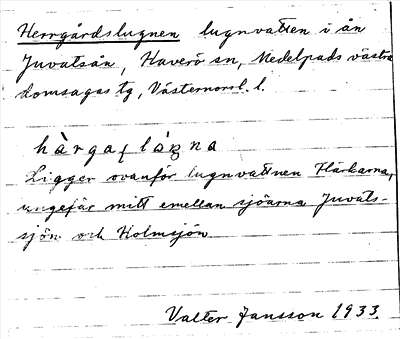 Herrgårdslugnen lugnvatten i ån
Juvatsån, Haverö sn, Medelpads västra
domsagas tg, Västernorrl. l.
hàrgaʃláŋna
Ligger ovanför lugnvattnen Flärkarna,
ungefär mitt emellan sjöarna Juvats-
sjön och Holmsjön
Valter Jansson 1933